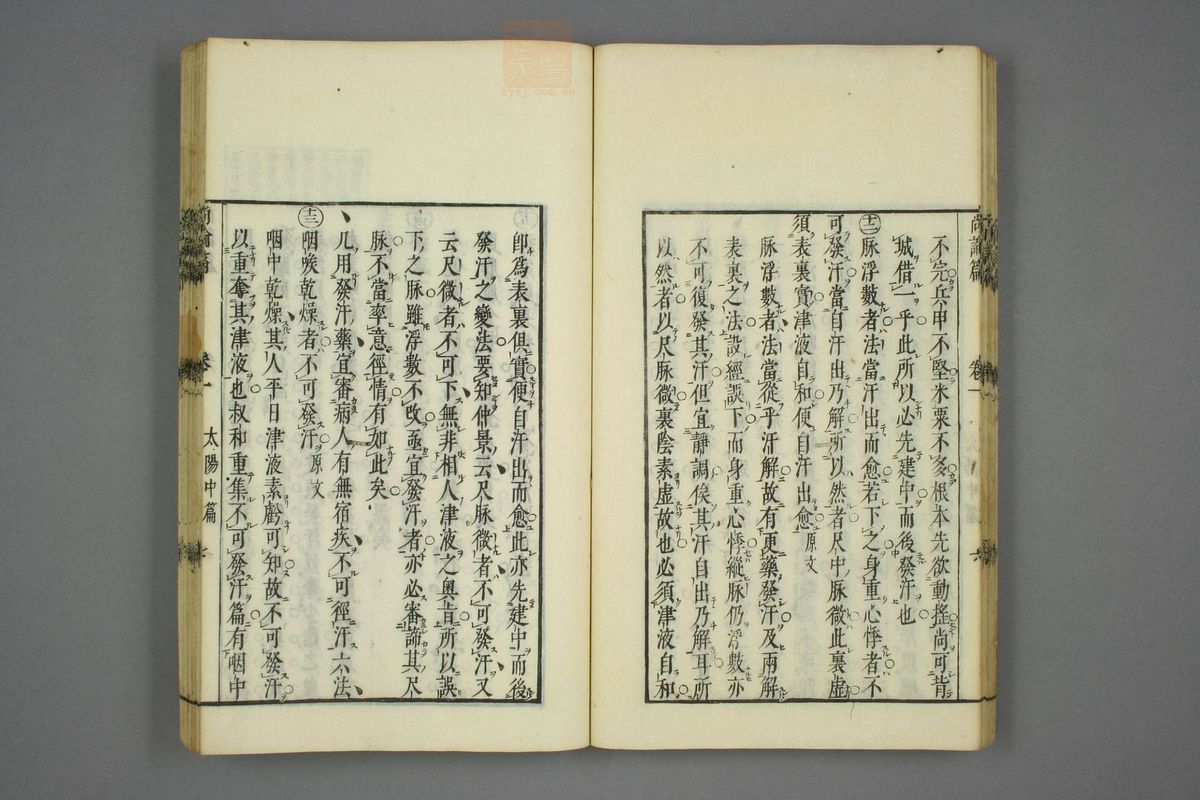 不完兵甲不堅米粟不多根本先欲動搖尚可背
城借一乎此所以必先建中而後發汗也
十二脉浮數者法當汗出而愈若下之身重心悸者不
可發汗當自汗出乃解所以然者尺中脉微此裏虛
須表裏實津液自和便自汗出愈原文
脉浮數者法當從乎汗解故有更藥發汗及兩解
表裏之法設經誤下而身重心悸縱脉仍浮數亦
不可復發其汗但宜靜調俟其汗自出乃解耳所
以然者以尺脉微裏陰素虛故也必須津液自和
尚論篇 卷一
卽為表裏俱實便自汗出而愈此亦先建中而後
發汗之變法要知仲景云尺脉微者不可發汗又
云尺微者不可下無非相人津液之奥旨所以誤
下之脉雖浮數不改亟宜發汗者亦必審諦其尺
脉不當率意徑情有如此矣
凡用發汗藥宜審病人有無宿疾不可徑汗六法
十三咽喉乾燥者不可發汗原文
咽中乾燥其人平日津液素虧可知故不可發汗
以重奪其津液也叔和重集不可發汗篇有咽中
卷一 太陽中篇
zysj.com.cn